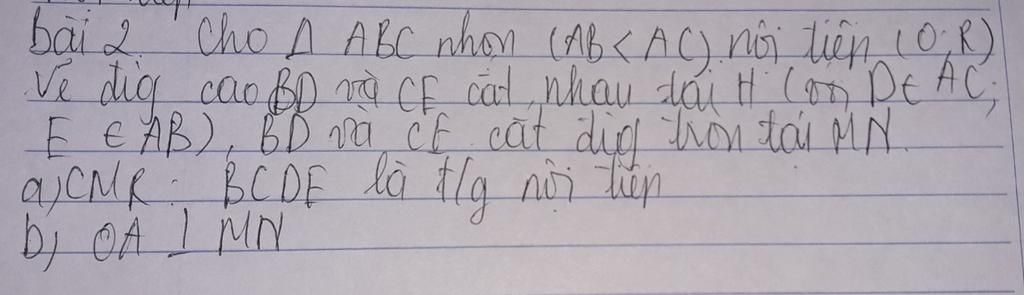 bài 2. Cho Δ ABC nhọn (AB < AC) nôi tiên (O;R)
Vẽ đig cao BD và CE cắt nhau tái H ( D ∈ AC;
E ∈ AB), BD và CE cắt đig tròn tái MN.
a) CMR: BCDE là t/g nôi tiên
b) OA ⊥ MN